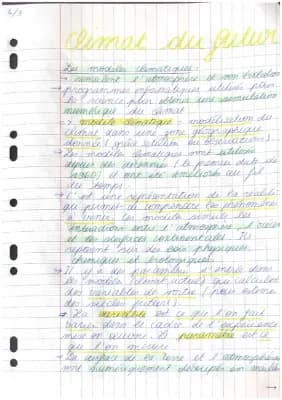 4/3
Climat du futur
Les modèles climatiques :
→ simulent l'atmosphère et son évolution
→ programmes informatiques utilisés par
la science pour obtenir une simulation
numérique du climat
→ modèle climatique : modélisation du
climat dans une zone géographique
donnée (grâce aux observations)
→ Les modèles climatiques sont utilisés
depuis des années (le premier date de
1960) et ont été améliorés au fil
du temps.
→ C'est une représentation de la réalité
qui permet de comprendre les phénomènes
à venir. Les modèles simulent les
interactions entre l'atmosphère, l'océan
et les surfaces continentales. Ils
reposent sur des lois physiques,
chimiques et biologiques.
→ Il y a des paramètres d'entrée dans
les modèles (climat actuel) qui calculent
des variables de sortie (pour
des siècles futurs).
→ La variable est ce que l'on fait
varier dans le cadre de l'expérience
mise en œuvre. Le paramètre est ce
que l'on mesure.
→ La surface de la terre et l'atmosphère
sont numériquement découpés en mailles